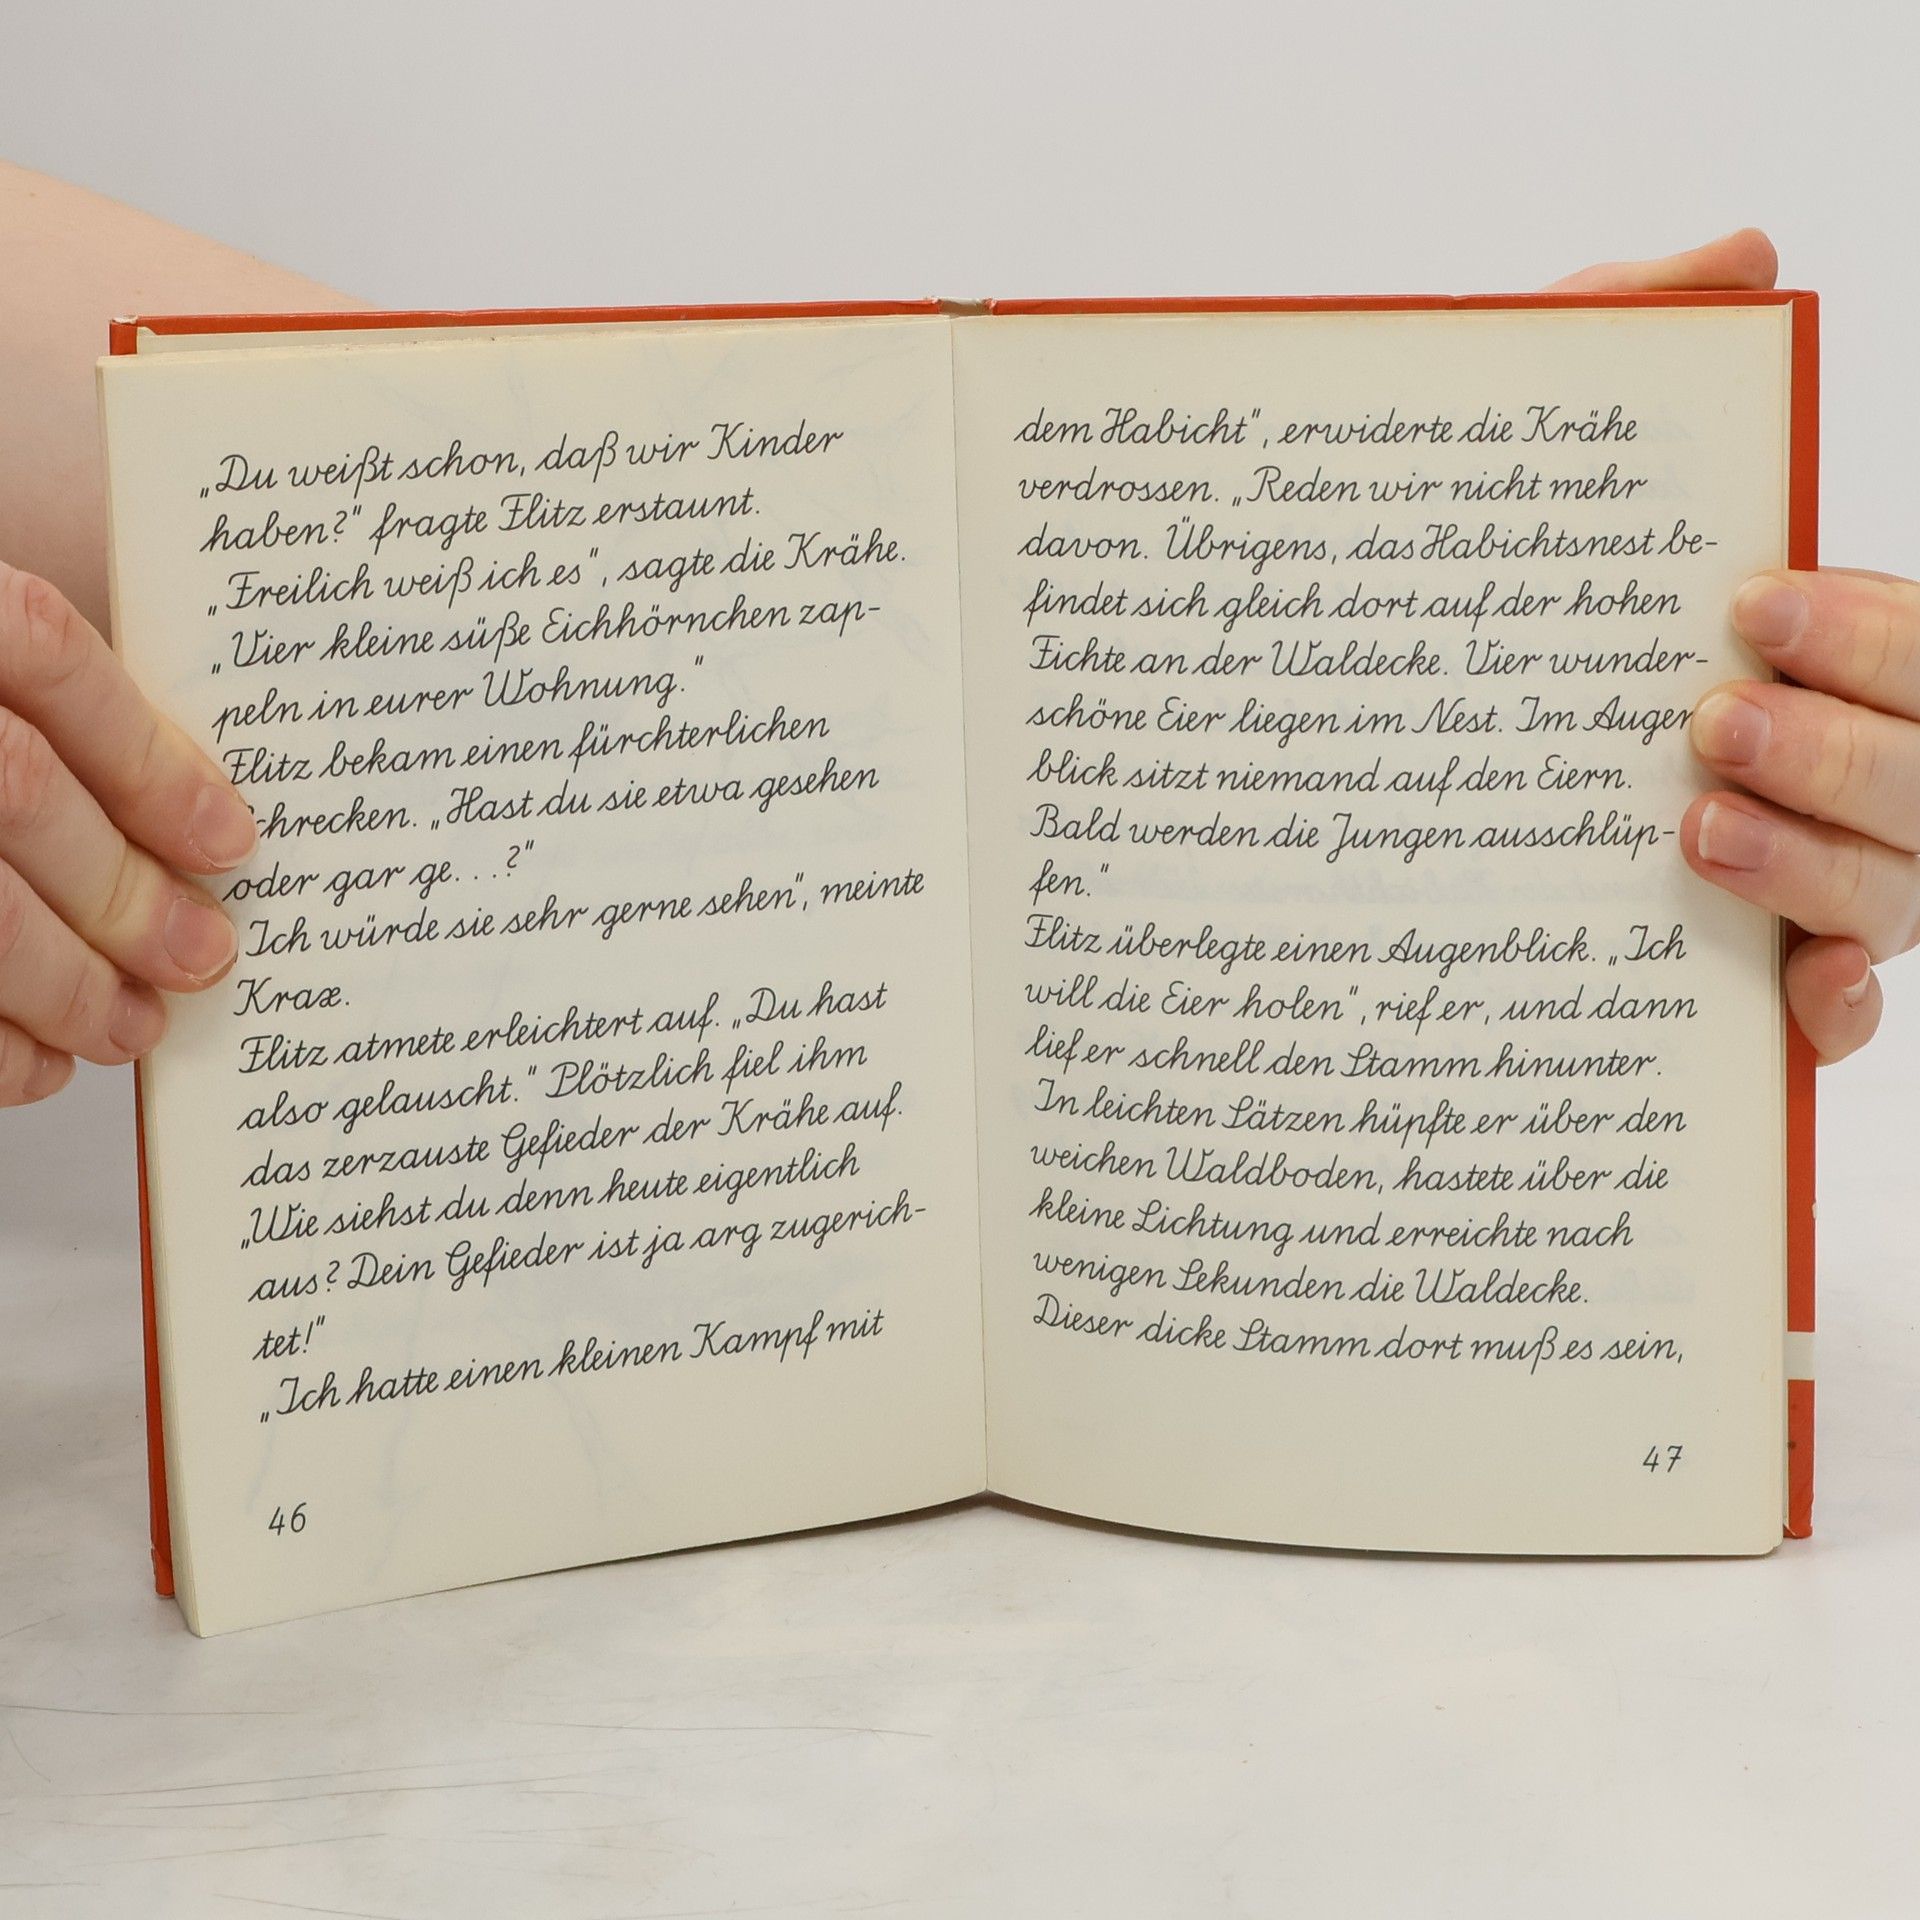 „Du weißt schon, daß wir Kinder
haben?" fragte Flitz erstaunt.
„Freilich weiß ich es", sagte die Krähe.
„Vier kleine süße Eichhörnchen zap-
peln in eurer Wohnung."
Flitz bekam einen fürchterlichen
chrecken. „Hast du sie etwa gesehen
oder gar ge. . .?"
Ich würde sie sehr gerne sehen", meinte
Krax.
Flitz atmete erleichtert auf. „Du hast
also gelauscht." Plötzlich fiel ihm
das zerzauste Gefieder der Krähe auf.
„Wie siehst du denn heute eigentlich
aus? Dein Gefieder ist ja arg zugerich-
tet!"
„Ich hatte einen kleinen Kampf mit
46
dem Habicht", erwiderte die Krähe
verdrossen. „Reden wir nicht mehr
davon. Übrigens, das Habichtsnest be-
findet sich gleich dort auf der hohen
Fichte an der Waldecke. Vier wunder-
schöne Eier liegen im Nest. Im Augen
blick sitzt niemand auf den Eiern.
Bald werden die Jungen ausschlüp-
fen."
Flitz überlegte einen Augenblick. „Ich
will die Eier holen", rief er, und dann
lief er schnell den Stamm hinunter.
In leichten Sätzen hüpfte er über den
weichen Waldboden, hastete über die
kleine Lichtung und erreichte nach
wenigen Sekunden die Waldecke.
Dieser dicke Stamm dort muß es sein,
47